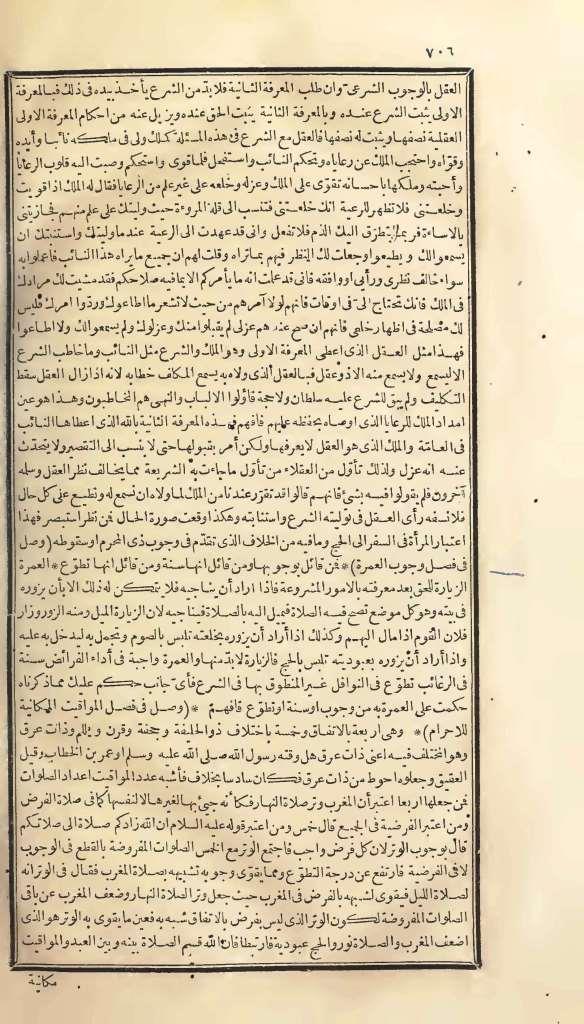 ٧٠٦
العقل بالوجوب الشرعى وان طلب المعرفة الثانية فلابد من الشرع يأخذ بيده فى ذلك فبالمعرفة
الاولى يثبت الشرع عنده وبالمعرفة الثانية يثبت الحق عنده ويزيل عنه من احكام المعرفة الاولى
العقلية نصفها ويثبت له نصفها فالعقل مع الشرع فى هذه المسئلة كملك ولى فى ملكه نائبا وأيده
وقواه واحتجب الملك عن رعاياه وتحكم النائب واستفحل فلما قوى واستحكم وصبت اليه قلوب الرعايا
وأحبته وملكها باحسانه تقوى على الملك وعزله وخلعه على غير علم من الرعايا فقال له الملك اذا قويت
وخلعتنى فلا تظهر للرعية انك خلعتنى فتنسب الى قلة المروءة حيث وليتك على علم منهم فجازيتنى
بالاساءة فربما يتطرق اليك الذم فلا تفعل وانى قد عهدت الى الرعية عند ما وليتك واستنبتك ان
يسمعوا لك ويطيعوا وجعلت لك النظر فيهم بما تراه وقلت لهم ان جميع ما يراه هذا النائب فاعملوا به
سواء خالف نظرى ورأيى او وافقه فانى قد علمت انه ما يأمركم الا بما فيه صلاحكم فقد مشيت لك مرادك
فى الملك فانك تحتاج الى فى اوقات فانهم لولا آمرهم من حيث لا تشعر ما اطاعوك وردوا امرك فليس
لك مصلحة فى اظهار خلعى فانهم ان صح عندهم عزلى لم يقبلوا منك وعزلوك ولم يسمعوا لك ولا اطاعوا
فهذا مثل العقل الذى اعطى المعرفة الاولى وهو الملك والشرع مثل النائب وما خاطب الشرع
الا ليسمع ولا يسمع منه الا ذو عقل فبالعقل الذى ولاه به يسمع المكلف خطابه لانه اذا زال العقل سقط
التكليف ولم يبق للشرع عليه سلطان ولا حجة فاولوا الالباب والنهى هم المخاطبون وهذا هو عين
امداد الملك للرعايا الذى اوصاه بحفظه عليهم فافهم فهذه المعرفة الثانية بالله الذى اعطاها النائب
فى العامة والملك الذى هو العقل لا يعرفها ولكن أمر بقبولها حتى لا ينسب الى التقصير ولا يتحدث
عنه انه عزل ولذلك تأول من العقلاء من تأول ما جاءت به الشريعة مما يخالف نظر العقل وسلمه
آخرون فلم يقولوا فيه بشئ فانهم قالوا قد تقرر عندنا من الملك لما ولاه ان نسمع له ونطيع على كل حال
فلا نسفه رأى العقل فى توليته الشرع واستنابته وهكذا وقعت صورة الحال فمن نظر استبصر فهذا
اعتبار المرأة فى السفر الى الحج وما فيه من الخلاف الذى تقدم فى وجوب ذى المحرم او سقوطه (وصل
فى فصل وجوب العمرة)* فمن قائل بوجوبها ومن قائل انها سنة ومن قائل انها تطوع * العمرة
الزيارة للحق بعد معرفته بالامور المشروعة فاذا اراد أن يناجيه فلا يتمكن له ذلك الا بأن يزوره
فى بيته وهو كل موضع تصح فيه الصلاة فيميل اليه بالصلاة فيناجيه لان الزيارة الميل ومنه الزور وزار
فلان القوم اذا مال اليهم وكذلك اذا أراد أن يزوره بخلعته تلبس بالصوم وتجمل به ليدخل به عليه
واذا أراد أن يزوره بعبوديته تلبس بالحج فالزيارة لا بد منها والعمرة واجبة فى أداء الفرائض سنة
فى الرغائب تطوع فى النوافل غير المنطوق بها فى الشرع فأى جانب حكم عليك مما ذكرناه
حكمت على العمرة به من وجوب او سنة او تطوع فافهم * (وصل فى فصل المواقيت المكانية
للاحرام)* وهى اربعة بالاتفاق وخمسة باختلاف ذو الحليفة وجحفة وقرن ويلملم وذات عرق
وهو المختلف فيه اعنى ذات عرق هل وقته رسول الله صلى الله عليه وسلم او عمر بن الخطاب وقيل
العقيق وجعلوه احوط من ذات عرق فكان سادسا بخلاف فأشبه عدد المواقيت اعداد الصلوات
فمن جعلها اربعا اعتبر أن المغرب وتر صلاة النهار فكأنه جئ بها لغيرها لا لنفسها كما فى صلاة الفرض
ومن اعتبر الفرضية فى الجميع قال خمس ومن اعتبر قوله عليه السلام ان الله زادكم صلاة الى صلاتكم
قال بوجوب الوتر لان كل فرض واجب فاجتمع الوتر مع الخمس الصلوات المفروضة بالقطع فى الوجوب
لا فى الفرضية فارتفع عن درجة التطوع ومما يقوى وجوبه تشبيهه بصلاة المغرب فقال فى الوتر انه
لصلاة الليل فيقوى لشبهه بالفرض فى المغرب حيث جعل وتر الصلاة النهار وضعف المغرب عن باقى
الصلوات المفروضة لكون الوتر الذى ليس بفرض بالاتفاق شبه به فعين ما يقوى به الوتر هو الذى
اضعف المغرب والصلاة نور والحج عبودية فارتبطا فان الله قسم الصلاة بينه وبين العبد والمواقيت
مكانية